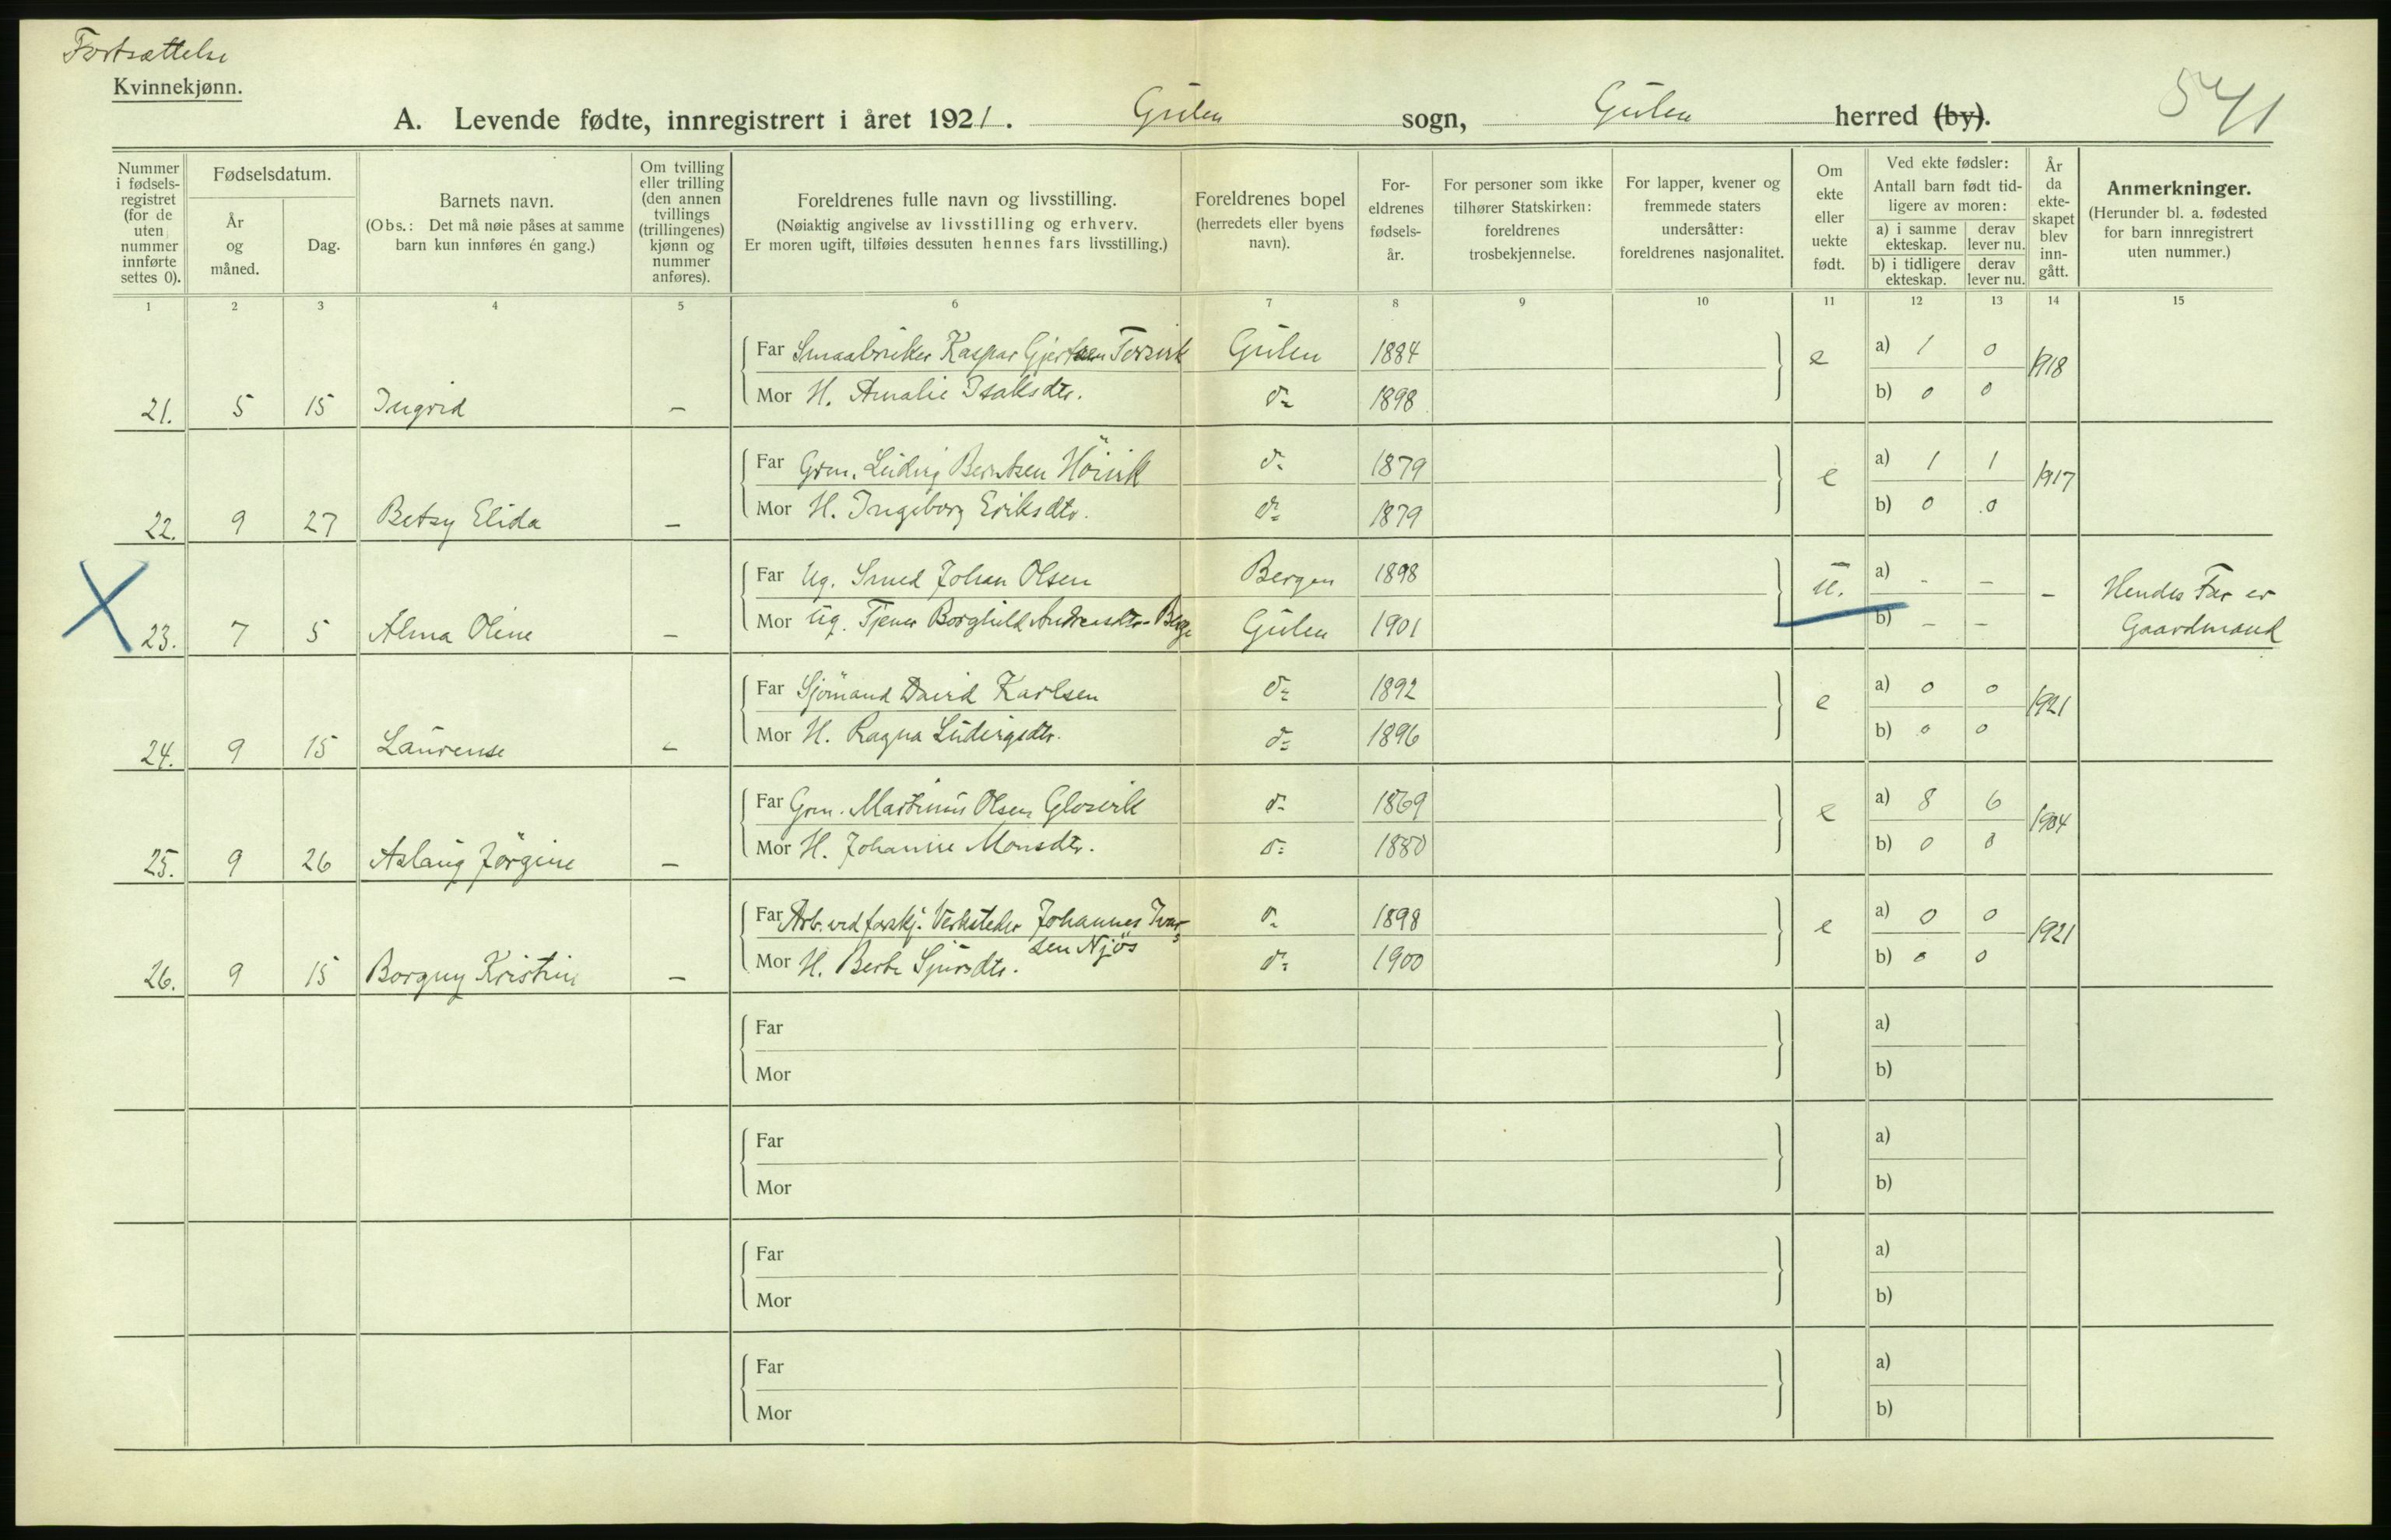 Fortsættelse
Kvinnekjønn.
A. Levende fødte, innregistrert i året 1921. Gulen sogn, Gulen herred (by).
541
Nummer i fødsels-registret (for de uten nummer innførte settes 0).
Fødselsdatum.
År og måned.
Dag.
Barnets navn.
(Obs.: Det må nøie påses at samme barn kun innføres én gang.)
Om tvilling eller trilling (den annen tvillings (trillingenes) kjønn og nummer anføres).
Foreldrenes fulle navn og livsstilling.
(Nøiaktig angivelse av livsstilling og erhverv.
Er moren ugift, tilføies dessuten hennes fars livsstilling.)
Foreldrenes bopel
(herredets eller byens navn).
For-eldrenes fødsels-år.
For personer som ikke tilhører Statskirken: foreldrenes trosbekjennelse.
For lapper, kvener og fremmede staters undersåtter: foreldrenes nasjonalitet.
Om ekte eller uekte født.
Ved ekte fødsler:
Antall barn født tid-ligere av moren:
a) i samme ekteskap. derav lever nu.
b) i tidligere ekteskap. derav lever nu.
År da ekte-skapet blev inn-gått.
Anmerkninger.
(Herunder bl. a. fødested for barn innregistrert uten nummer.)
1 2 3 4 5 6 7 8 9 10 11 12 13 14 15
Far Smaabruker Kaspar Gjertsen Gulen 1884 e a) 1 0 1918
21. 5 15 Ingrid – Mor H. Amalie Isaksdtr. do 1898 b) 0 0
Far Grm. Ludvig Berntsen Høivik do 1879 e a) 1 1 1917
22. 9 27 Betsy Elida – Mor H. Ingeborg Eriksdtr. do 1879 b) 0 0
Far Ug. Smed Johan Olsen Bergen 1898 u. a) - – – Hendes Far er
23. 7 5 Alma Oline – Mor Ug. Tjener Borghild Andreasdtr. Berge Gulen 1901 b) – – Gaardmand
Far Sjømand David Karlsen do 1892 e a) 0 0 1921
24. 9 15 Laurense – Mor H. Ragna Ludvigsdtr. do 1896 b) 0 0
Far Grm. Martinus Olsen Glosvik do 1869 e a) 8 6 1904
25. 9 26 Aslaug Jørgine – Mor H. Johanne Monsdtr. do 1880 b) 0 0
Far Arb. ved forskj. Verksteder Johannes Ivar- do 1898 e a) 0 0 1921
sen Njøs
26. 9 15 Borgny Kristine – Mor H. Berte Sjursdtr. do 1900 b) 0 0
Far a)
Mor b)
Far a)
Mor b)
Far a)
Mor b)
Far a)
Mor b)